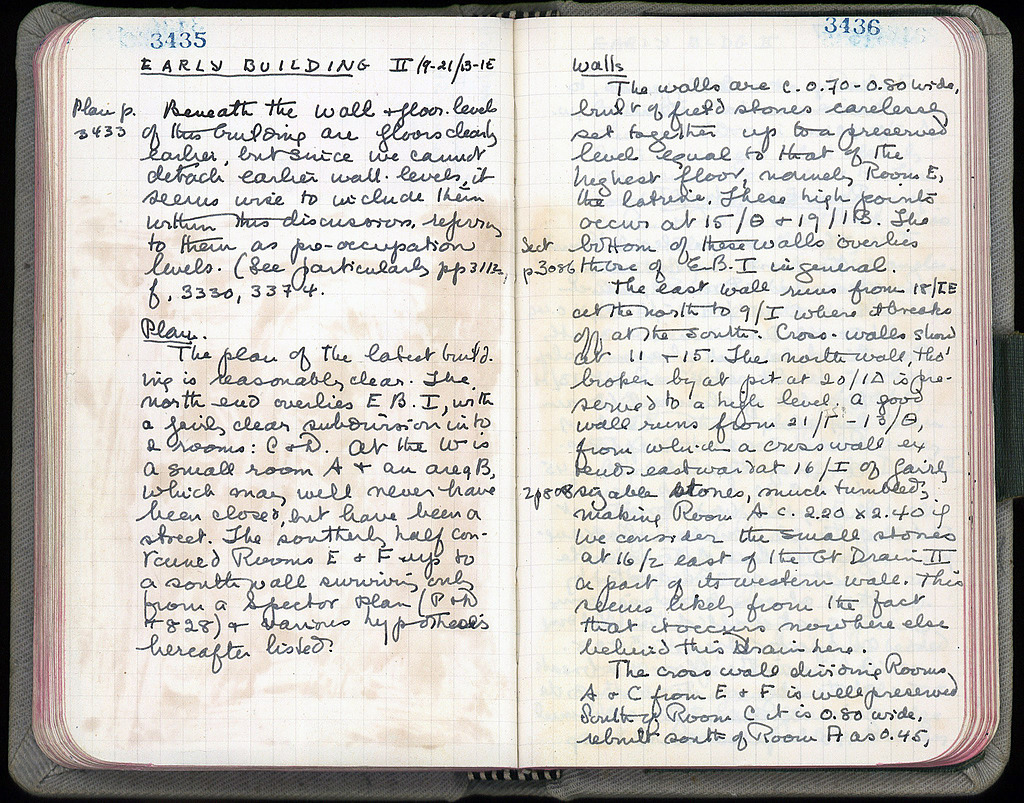 3435
EARLY BUILDING II /9-21/13-IE
Plan p.
3433
Beneath the wall + floor levels
of this building are floors clearly
earlier, but since we cannot
detach earlier wall levels, it
seems wise to include them
within this discussion, referring
to them as pre-occupation
levels. (See particularly pp 3113,
f, 3330, 3374.
Plan.
The plan of the latest build-
ing is reasonably clear. The
north end overlies E.B.I, with
a fairly clear subdivision into
2 rooms: C + D. At the W is
a small room A + an area B,
which may well never have
been closed, but have been a
street. The southerly half con-
tained Rooms E + F up to
a south wall surviving only
from a Spector plan (P + D
#828) + various hypotheses
hereafter listed.
3436
Walls
The walls are c. 0.70-0.80 wide,
built of field stones carelessly
set together up to a preserved
level equal to that of the
highest floor, namely Room E,
the latrine. These high points
occur at 15/Θ + 19/IB. The
Sect
p.3086
bottom of these walls overlies
those of E.B.I in general.
The east wall runs from 18/IE
at the north to 9/I where it breaks
off at the south. Cross-walls show
at 11 + 15. The north wall tho'
broken by a pit at 20/IΔ is pre-
served to a high level. A good
wall runs from 21/Γ - 13/Θ,
from which a cross wall ex
tends eastward at 16/I of fairly
sizable stones, much tumbled,
making Room A c. 2.20 x 2.40 if
we consider the small stones
at 16/2 east of the Gt Drain II
a part of its western wall. This
seems likely from the fact
that it occurs nowhere else
behind this Drain here.
The cross wall dividing Rooms
A + C from E + F is well preserved
South of Room C it is 0.80 wide,
rebuilt south of Room A as 0.45,